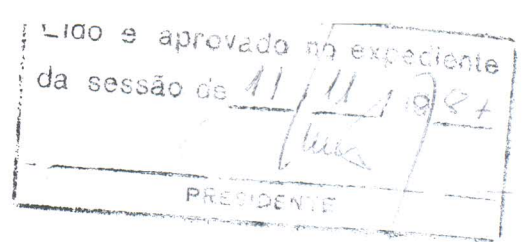 Lido e aprovado no expediente
da sessão de 11 / 11 / 1987
PRESIDENTE